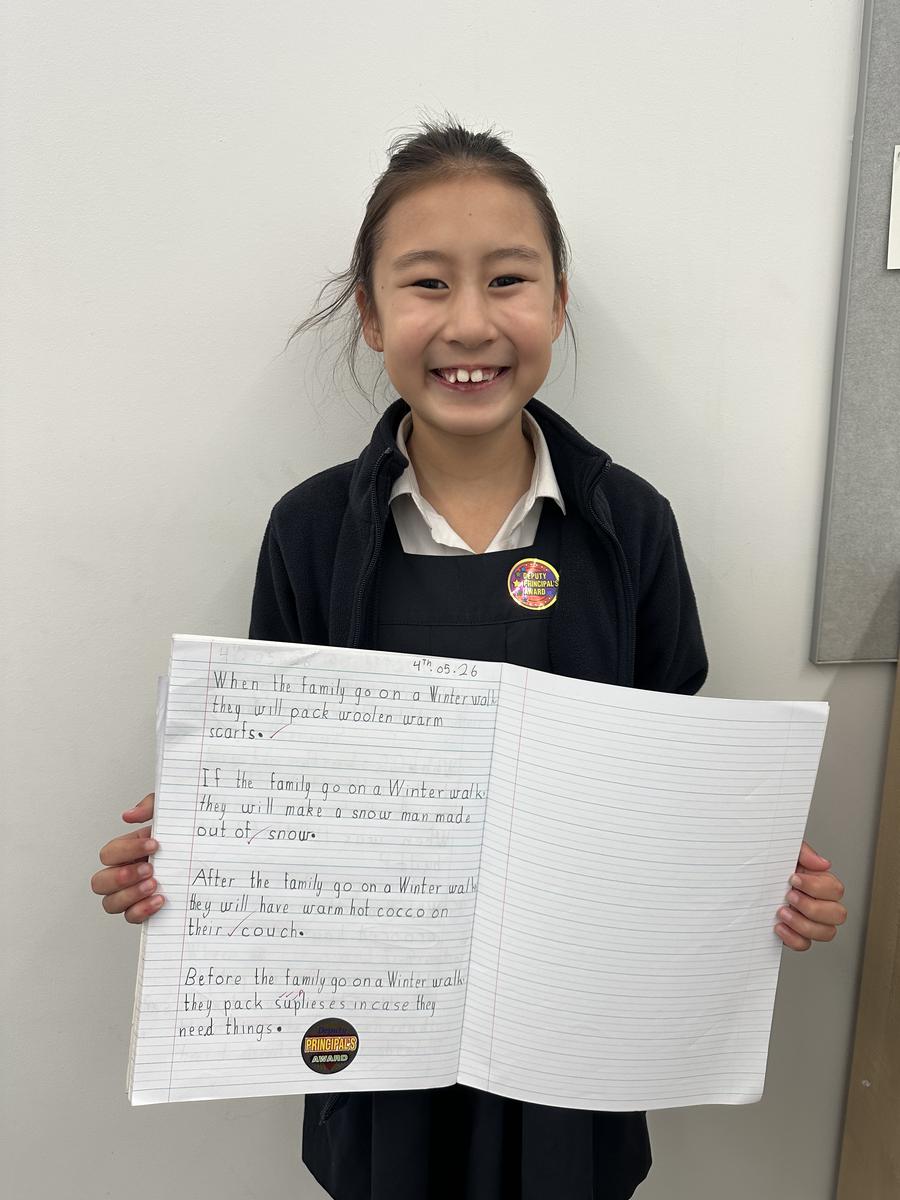 DEPUTY
PRINCIPAL'S
AWARD
4th.05.26
When the family go on a Winter walk
they will pack woolen warm
scarfs.
If the family go on a Winter walk
they will make a snow man made
out of snow.
After the family go on a Winter walk
they will have warm hot cocco on
their couch.
Before the family go on a Winter walk
they pack suplieses in case they
need things.
Deputy
PRINCIPAL'S
AWARD